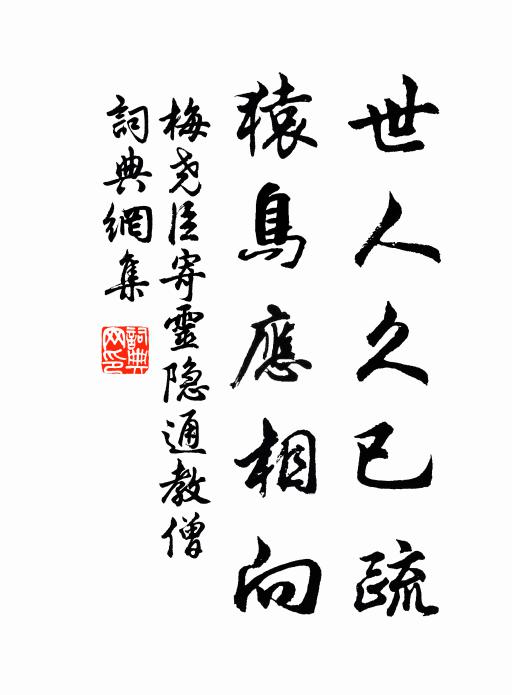 世人久已疏
猿鳥應相向
梅尧臣寄靈隐通教僧
詞典網集
詞典網印